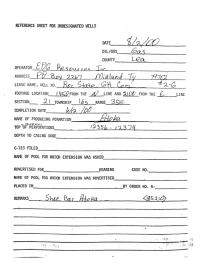 REFERENCE SHEET FOR UNDESIGNATED WELLS
DATE 8/2/00
OIL/GAS Gas
COUNTY Lea
OPERATOR EOG Resources In
ADDRESS PO Box 2267 Midland Tx
LEASE NAME, WELL NO. State
FOOTAGE LOCATION FROM THE N LINE AND FROM THE E LINE
SECTION 21 TOWNSHIP 16s RANGE 35E
COMPLETION DATE
NAME OF PRODUCING FORMATION Atoka
TOP OF PERFORATIONS 12356 - 12374
DEPTH TO CASING SHOE
C-123 FILED
NAME OF POOL FOR WHICH EXTENSION WAS ASKED
ADVERTISED FOR HEARING CASE NO.
NAME OF POOL FOR WHICH EXTENSION WAS ADVERTISED
PLACED IN BY ORDER NO. R-
REMARKS Shoe Bar Atoka